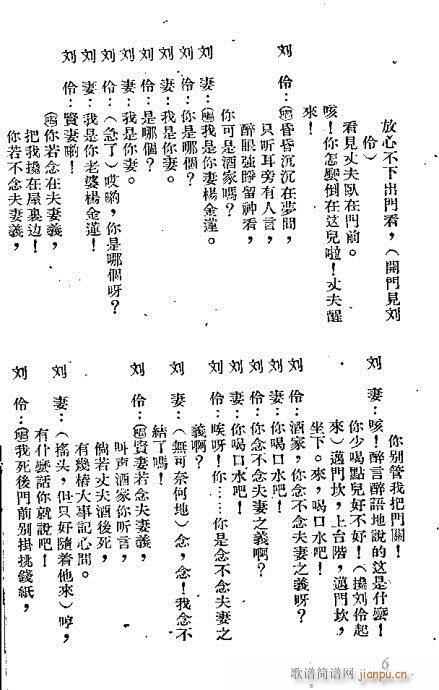 放心不下出門看，（開門見刘
伶）
看見丈夫臥在門前。
咳！你怎麼倒在这兒啦！丈夫醒
來！
刘　伶：（唱）昏昏沉沉在夢間，
只听耳旁有人言，
醉眼强睜留神看，
你可是酒家嗎？
刘　妻：（唱）我是你妻楊金蓮。
刘　伶：你是哪個？
刘　妻：我是你妻。
刘　伶：是哪個？
刘　妻：我是你妻。
刘　伶：（急了）哎喲，你是哪個呀？
刘　妻：我是你老婆楊金蓮！
刘　伶：賢妻喲！
（唱）你若念在夫妻義，
把我攙在屋裏边！
你若不念夫妻義，
你别管我把門關！
刘　妻：咳！醉言醉語地說的这是什麼！
你少喝點兒好不好！（攙刘伶起
來）邁門坎，上台階，邁門坎，
坐下。來，喝口水吧！
刘　伶：酒家，你念不念夫妻之義呀？
刘　妻：你喝口水吧！
刘　伶：你念不念夫妻之義啊？
刘　妻：你喝口水吧！
刘　伶：唉呀！你……你是念不念夫妻之
義啊？
刘　妻：（無可奈何地）念，念！我念不
結了嗎！
刘　伶：（唱）賢妻若念夫妻義，
叫声酒家你听言，
倘若丈夫酒後死，
有幾樁大事記心間。
刘　妻：（搖头，但只好随着他來）哼，
有什麼話你就說吧！
刘　伶：（唱）我死後門前别掛挑錢紙，
6
歌谱简谱网
jianpu.cn